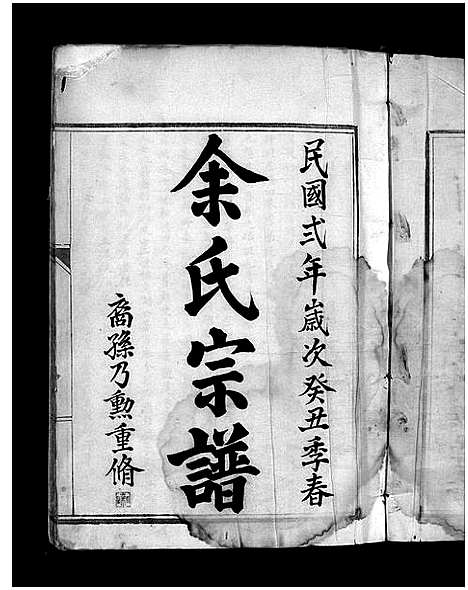 民國弍年歲次癸丑季春
余氏宗譜
裔孫乃勳重脩